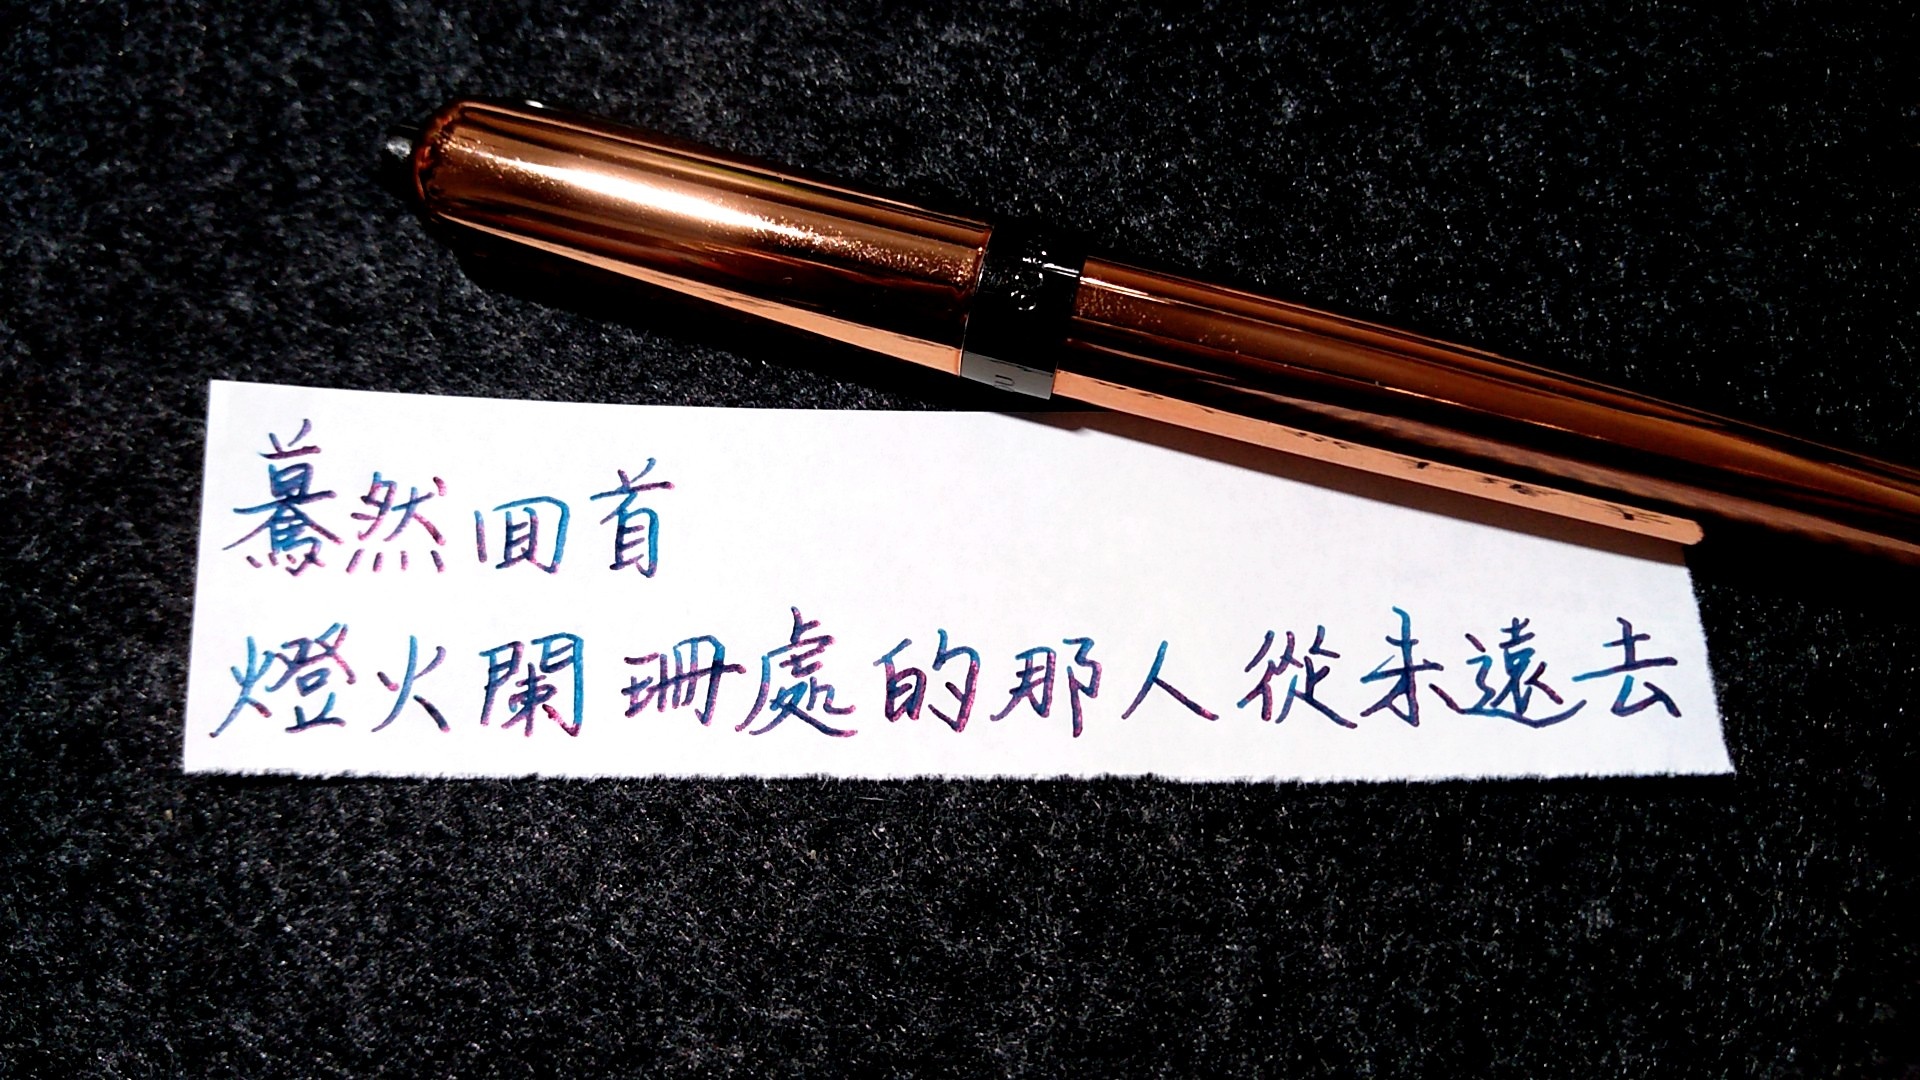 驀然回首
燈火闌珊處的那人從未遠去